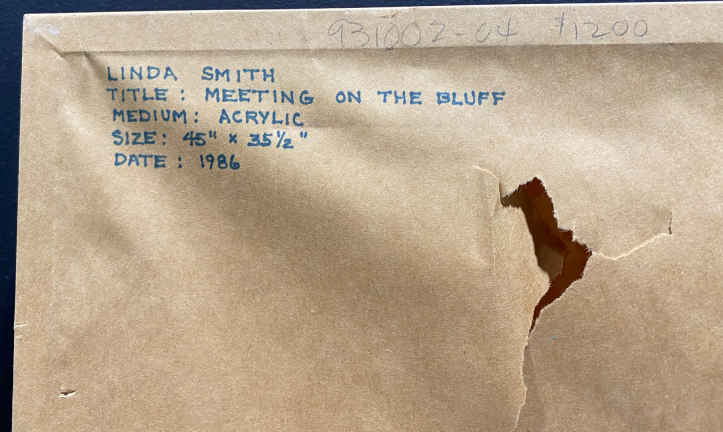 931002-04 $1200
LINDA SMITH
TITLE: MEETING ON THE BLUFF
MEDIUM: ACRYLIC
SIZE: 45" x 35 1/2"
DATE: 1986